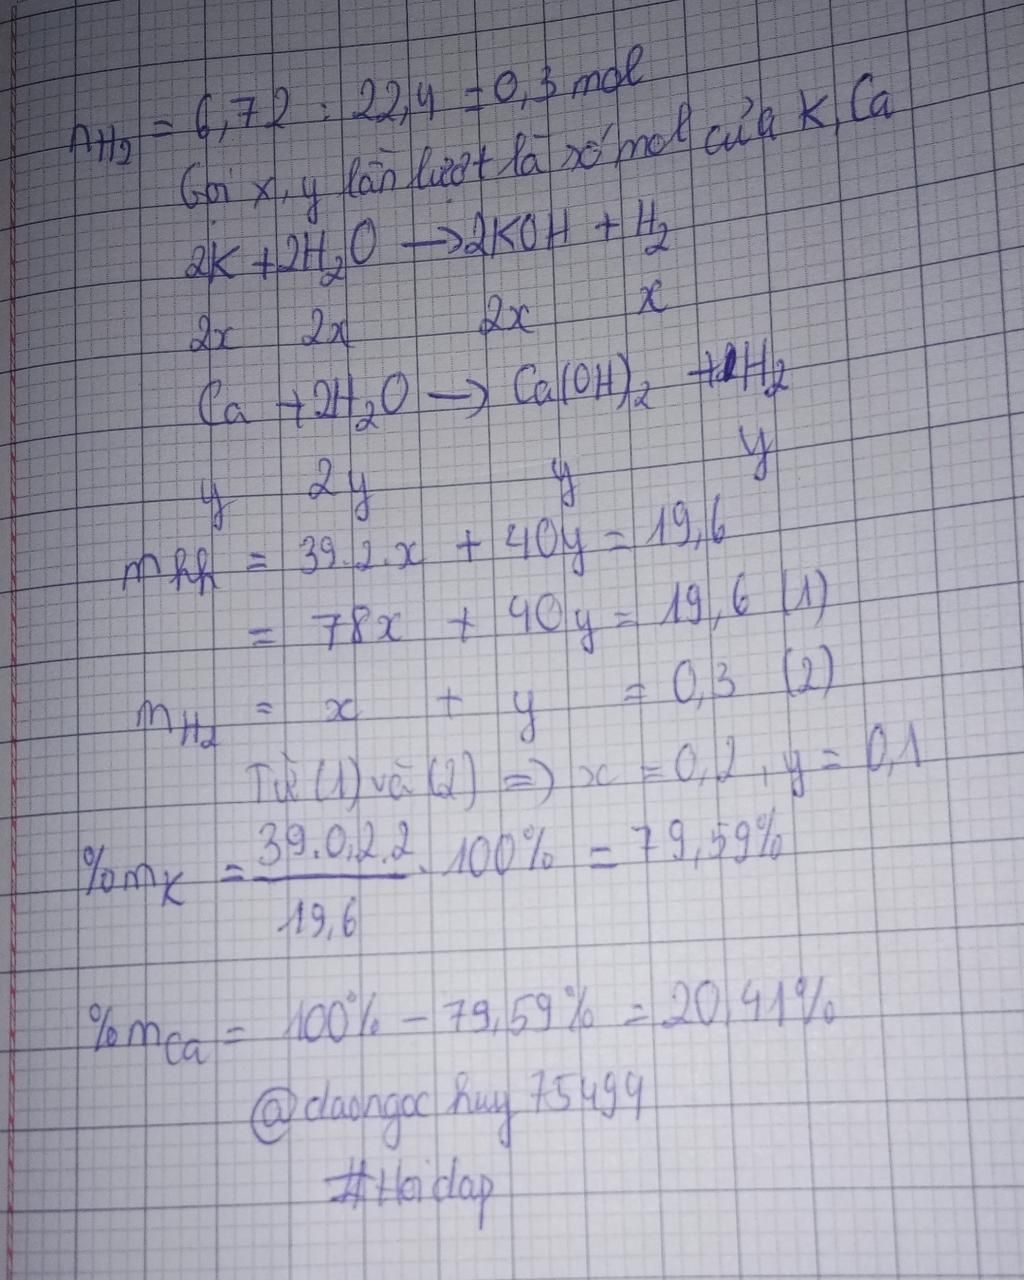 nH2 = 6,72 : 22,4 = 0,3 mol
Gọi x, y lần lượt là số mol của K, Ca
2K + 2H2O → 2KOH + H2
2x 2x 2x x
Ca + 2H2O → Ca(OH)2 + H2
y 2y y y
mhh = 39.2.x + 40y = 19,6
= 78x + 40y = 19,6 (1)
mH2 = x + y = 0,3 (2)
Từ (1) và (2) => x = 0,2, y = 0,1
%mK = 39.0,2.2 / 19,6 . 100% = 79,59%
%mCa = 100% - 79,59% = 20,41%
@daongochuy75494
#Hoidap